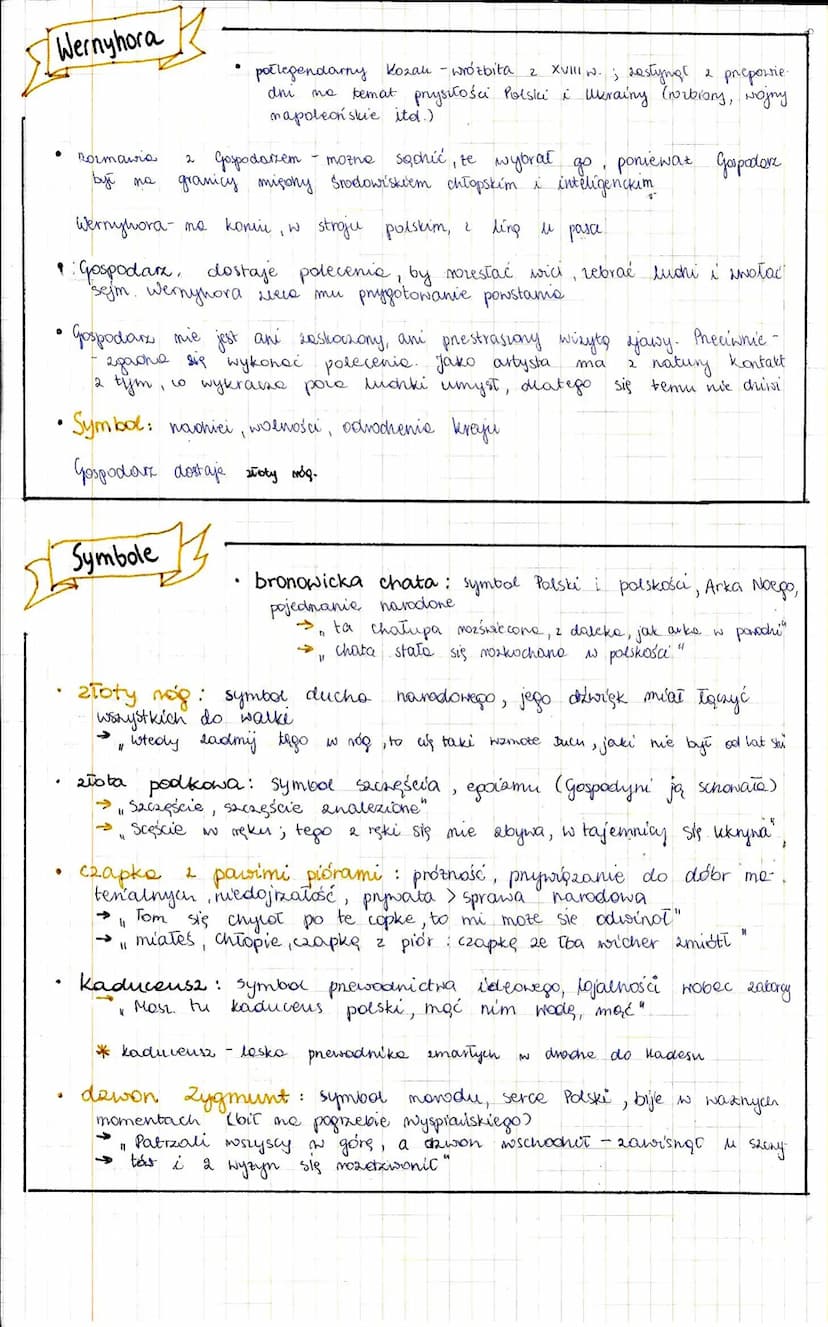 Wernyhora
• półlegendarny Kozak – wróżbita z XVIII w. ; zasłynął z przepowie-
dni na temat przyszłości Polski i Ukrainy (rozbiory, wojny
napoleońskie itd.)
• Rozmawia z Gospodarzem – można sądzić, że wybrał go, ponieważ Gospodarz
był na granicy między środowiskiem chłopskim i inteligenckim
Wernyhora – na koniu, w stroju polskim, z lirą u pasa
• Gospodarz, dostaje polecenia, by rozesłać wici, zebrać ludzi i zwołać
sejm. Wernyhora zleca mu przygotowanie powstania
• Gospodarz nie jest ani zaskoczony, ani przestraszony wizytą zjawy. Przeciwnie –
– zgadza się wykonać polecenia. Jako artysta ma z natury kontakt
z tym, co wykracza poza ludzki umysł, dlatego się temu nie dziwi
• Symbol: nadziei, wolności, odrodzenia kraju
Gospodarz dostaje złoty róg.
Symbole
• bronowicka chata: symbol Polski i polskości, Arka Noego,
pojednanie narodone
→ „ta chałupa rozświecona, z daleka, jak arka w powodzi"
→ „chata stała się rozkochana w polskości."
• złoty róg: symbol ducha narodowego, jego dźwięk miał łączyć
wszystkich do walki
→ „wtedy zadmij tęgo w róg, to się taki wzmoże Duch, jaki nie był od lat stu
• złota podkowa: symbol szczęścia, egoizmu (Gospodyni ją schowała)
→ „Szczęście, szczęście znalezione"
→ „Scęście w ręku; tego z ręki się nie zbywa, w tajemnicy się ukrywa",
• czapka z pawimi piórami: próżność, przywiązanie do dóbr ma-
terialnych, niedojrzałość, prywata > sprawa narodowa
→ „Tom się chyloł po te copke, to mi może sie odwinoł"
→ „miałeś, chłopie, czapkę z piór: czapkę ze łba wicher zmiótł"
• kaduceusz: symbol przewodnictwa ideowego, lojalności wobec zaborcy
→ „Masz tu kaduceus polski, mąć nim wodę, mąć"
* kaduceusz – laska przewodnika zmarłych w drodze do Hadesu
• dzwon Zygmunt: symbol narodu, serce Polski, bije w ważnych
momentach (bił na pogrzebie Wyspiańskiego)
→ „Patrzali wszyscy w górę, a dzwon wschodził – zawisnął u szczy-
→ tów i z wyżyn się rozedzwonił"